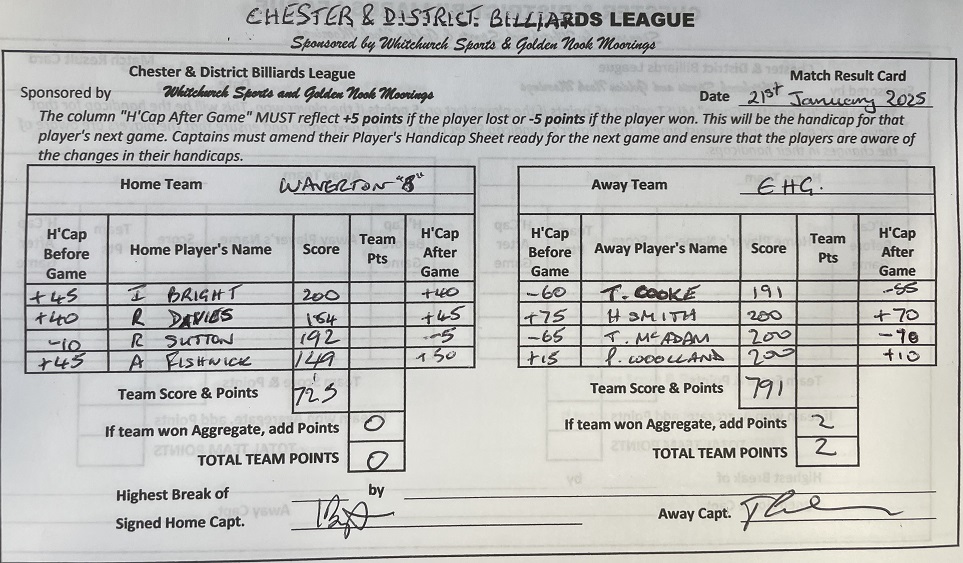 CHESTER & DISTRICT BILLIARDS LEAGUE
Sponsored by Whitchurch Sports & Golden Nook Moorings
Chester & District Billiards League
Match Result Card
Sponsored by Whitchurch Sports and Golden Nook Moorings
Date 21st January 2025
The column "H'Cap After Game" MUST reflect +5 points if the player lost or -5 points if the player won. This will be the handicap for that
player's next game. Captains must amend their Player's Handicap Sheet ready for the next game and ensure that the players are aware of
the changes in their handicaps.
Home Team WAVERTON "B"
H'Cap Before Game Home Player's Name Score Team Pts H'Cap After Game
+45 I BRIGHT 200 +40
+40 R DAVIES 184 +45
-10 R SUTTON 192 -5
+45 A FISHWICK 149 +50
Team Score & Points 725
If team won Aggregate, add Points 0
TOTAL TEAM POINTS 0
Away Team EHG.
H'Cap Before Game Away Player's Name Score Team Pts H'Cap After Game
-60 T. COOKE 191 -55
+75 H SMITH 200 +70
-65 T. McADAM 200 -70
+15 P. WOOLLAND 200 +10
Team Score & Points 791
If team won Aggregate, add Points 2
TOTAL TEAM POINTS 2
Highest Break of by
Signed Home Capt.
Away Capt.